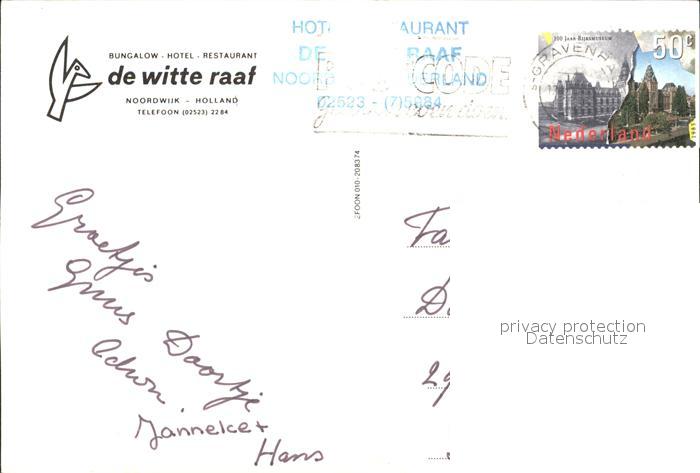 BUNGALOW - HOTEL - RESTAURANT
de witte raaf
NOORDWIJK - HOLLAND
TELEFOON (02523) 2284
AURANT
DE RAAF
NOORD ERLAND
02523 - (7)5984
CODE
'S-GRAVENH
100 JAAR RIJKSMUSEUM
50c
Nederland
1985
EFOON 010-208374
Groetjes
Guus Doortje
Adwon.
Janneke+
Hans
Fa
D
29
privacy protection
Datenschutz